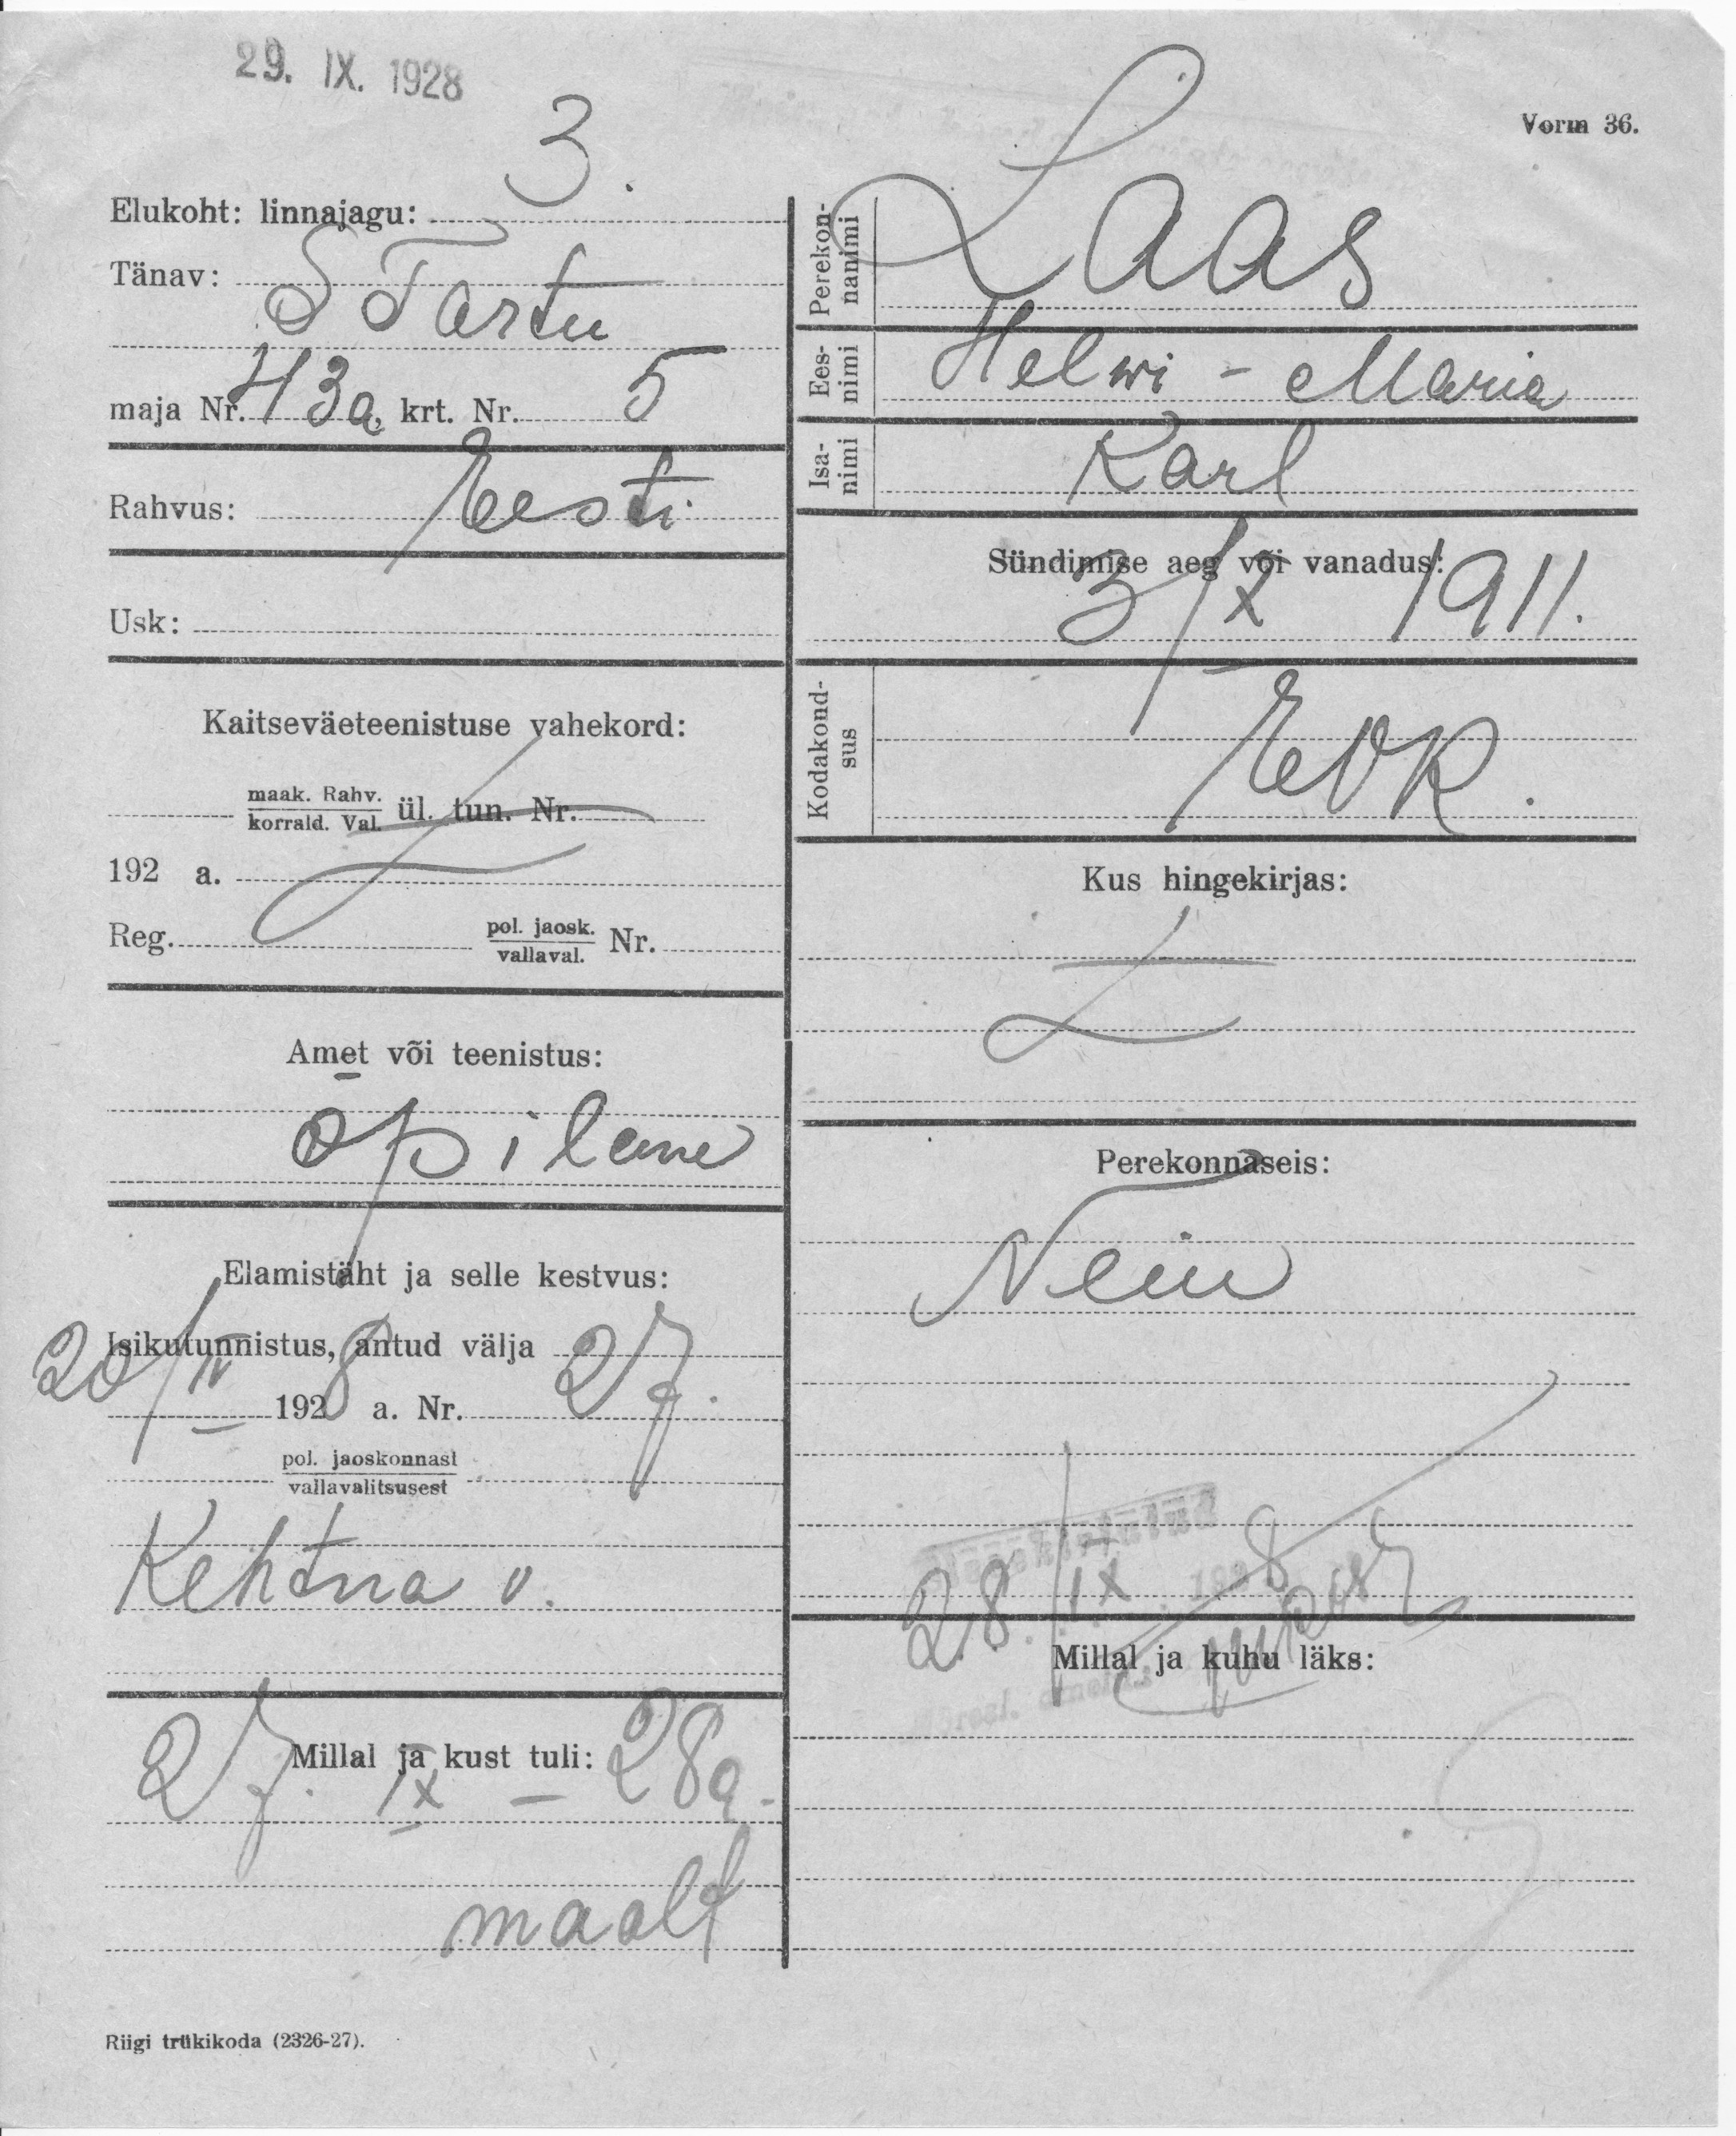 29. IX. 1928
Vorm 36.
Elukoht: linnajagu: 3.
Tänav: S Tartu
maja Nr. 43a, krt. Nr. 5
Rahvus: Eesti
Usk:
Kaitseväeteenistuse vahekord:
maak. Rahv.
korrald. Val. ül. tun. Nr.
192 a.
Reg. pol. jaosk.
vallaval. Nr.
Amet või teenistus:
õpilane
Elamistäht ja selle kestvus:
Isikutunnistus, antud välja
20/IV 1928 a. Nr. 27.
pol. jaoskonnast
vallavalitsusest
Kehtna v.
Millal ja kust tuli:
27. IX – 28a.
maalt
Riigi trükikoda (2326-27).
Perekon-
nanimi Laas
Ees-
nimi Helwi - Maria
Isa-
nimi Karl
Sündimise aeg või vanadus:
3/X 1911.
Kodakond-
sus EVR.
Kus hingekirjas:
Perekonnaseis:
Neiu
28/IX 1928
Millal ja kuhu läks: